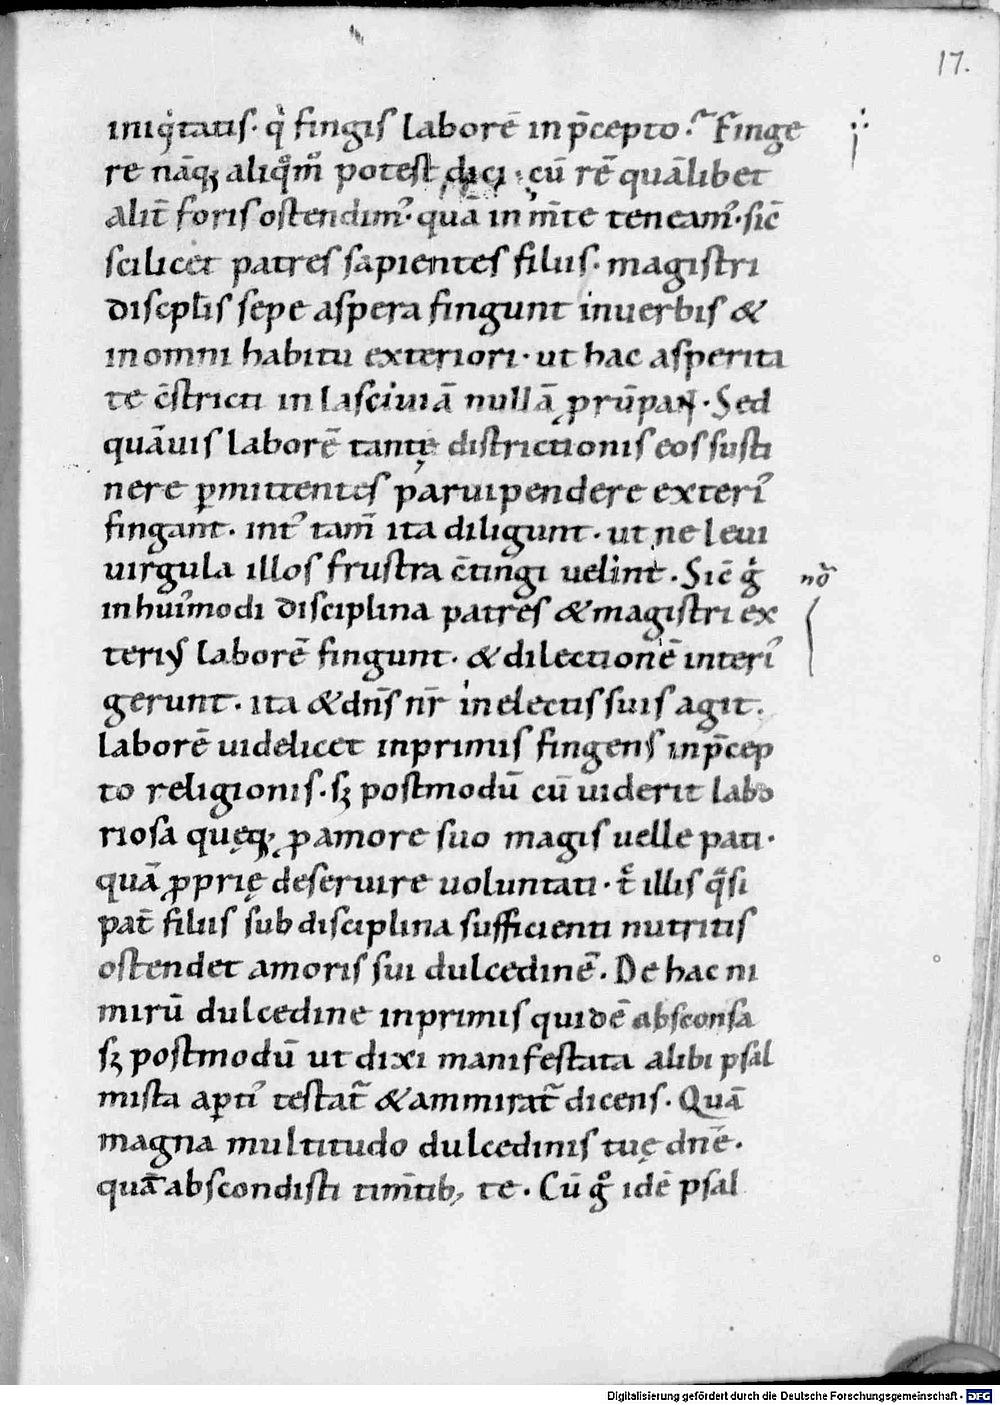 17.
iniqͥtatis· qͥ fingis laborē in p̄cepto? Finge
re nāq; aliqͦm̊ potest dici· cū rē quālibet
alit̄ foris ostendimꝰ· quā in m̄te teneamꝰ· sic̄
scilicet patres sapientes filiis· magistri
discpl̄is sepe aspera fingunt inuerbis &
inomni habitu exteriori· ut hac asperita
te c̄stricti in lasciuiā nullā ꝓrūpaɴᴛ· Sed
quāuis laborē tantę districtionis eos susti
nere ꝑmittentes paruipendere exteriꝰ
fingant· intꝰ tam̄ ita diligunt· ut ne leui
uirgula illos frustra c̄tingi uelint· Sic̄ gͥ
nō
inhuiꝰmodi disciplina patres & magistri ex
teriꝰ laborē fingunt· & dilectionē interiꝰ
gerunt· ita & dn̄s nr̄ in electis suis agit·
laborē uidelicet inprimis fingens inp̄cep
to religionis· sꝫ postmodū cū uiderit labo
riosa quęq; ꝓ amore suo magis uelle pati·
quā ꝓprię deseruire uoluntati· t̄ illis qͣsi
pat̄ filiis sub disciplina sufficienti nutritis
ostendet amoris sui dulcedinē. De hac ni
mirū dulcedine inprimis quidē absconsa
sꝫ postmodū ut dixi manifestata alibi psal
mista aꝑtiꝰ testat᷑ & ammirat᷑ dicens· Quā
magna multitudo dulcedinis tuę dn̄e·
quā abscondisti tim̄tib; te· Cū gͦ idē psal
Digitalisierung gefördert durch die Deutsche Forschungsgemeinschaft - DFG